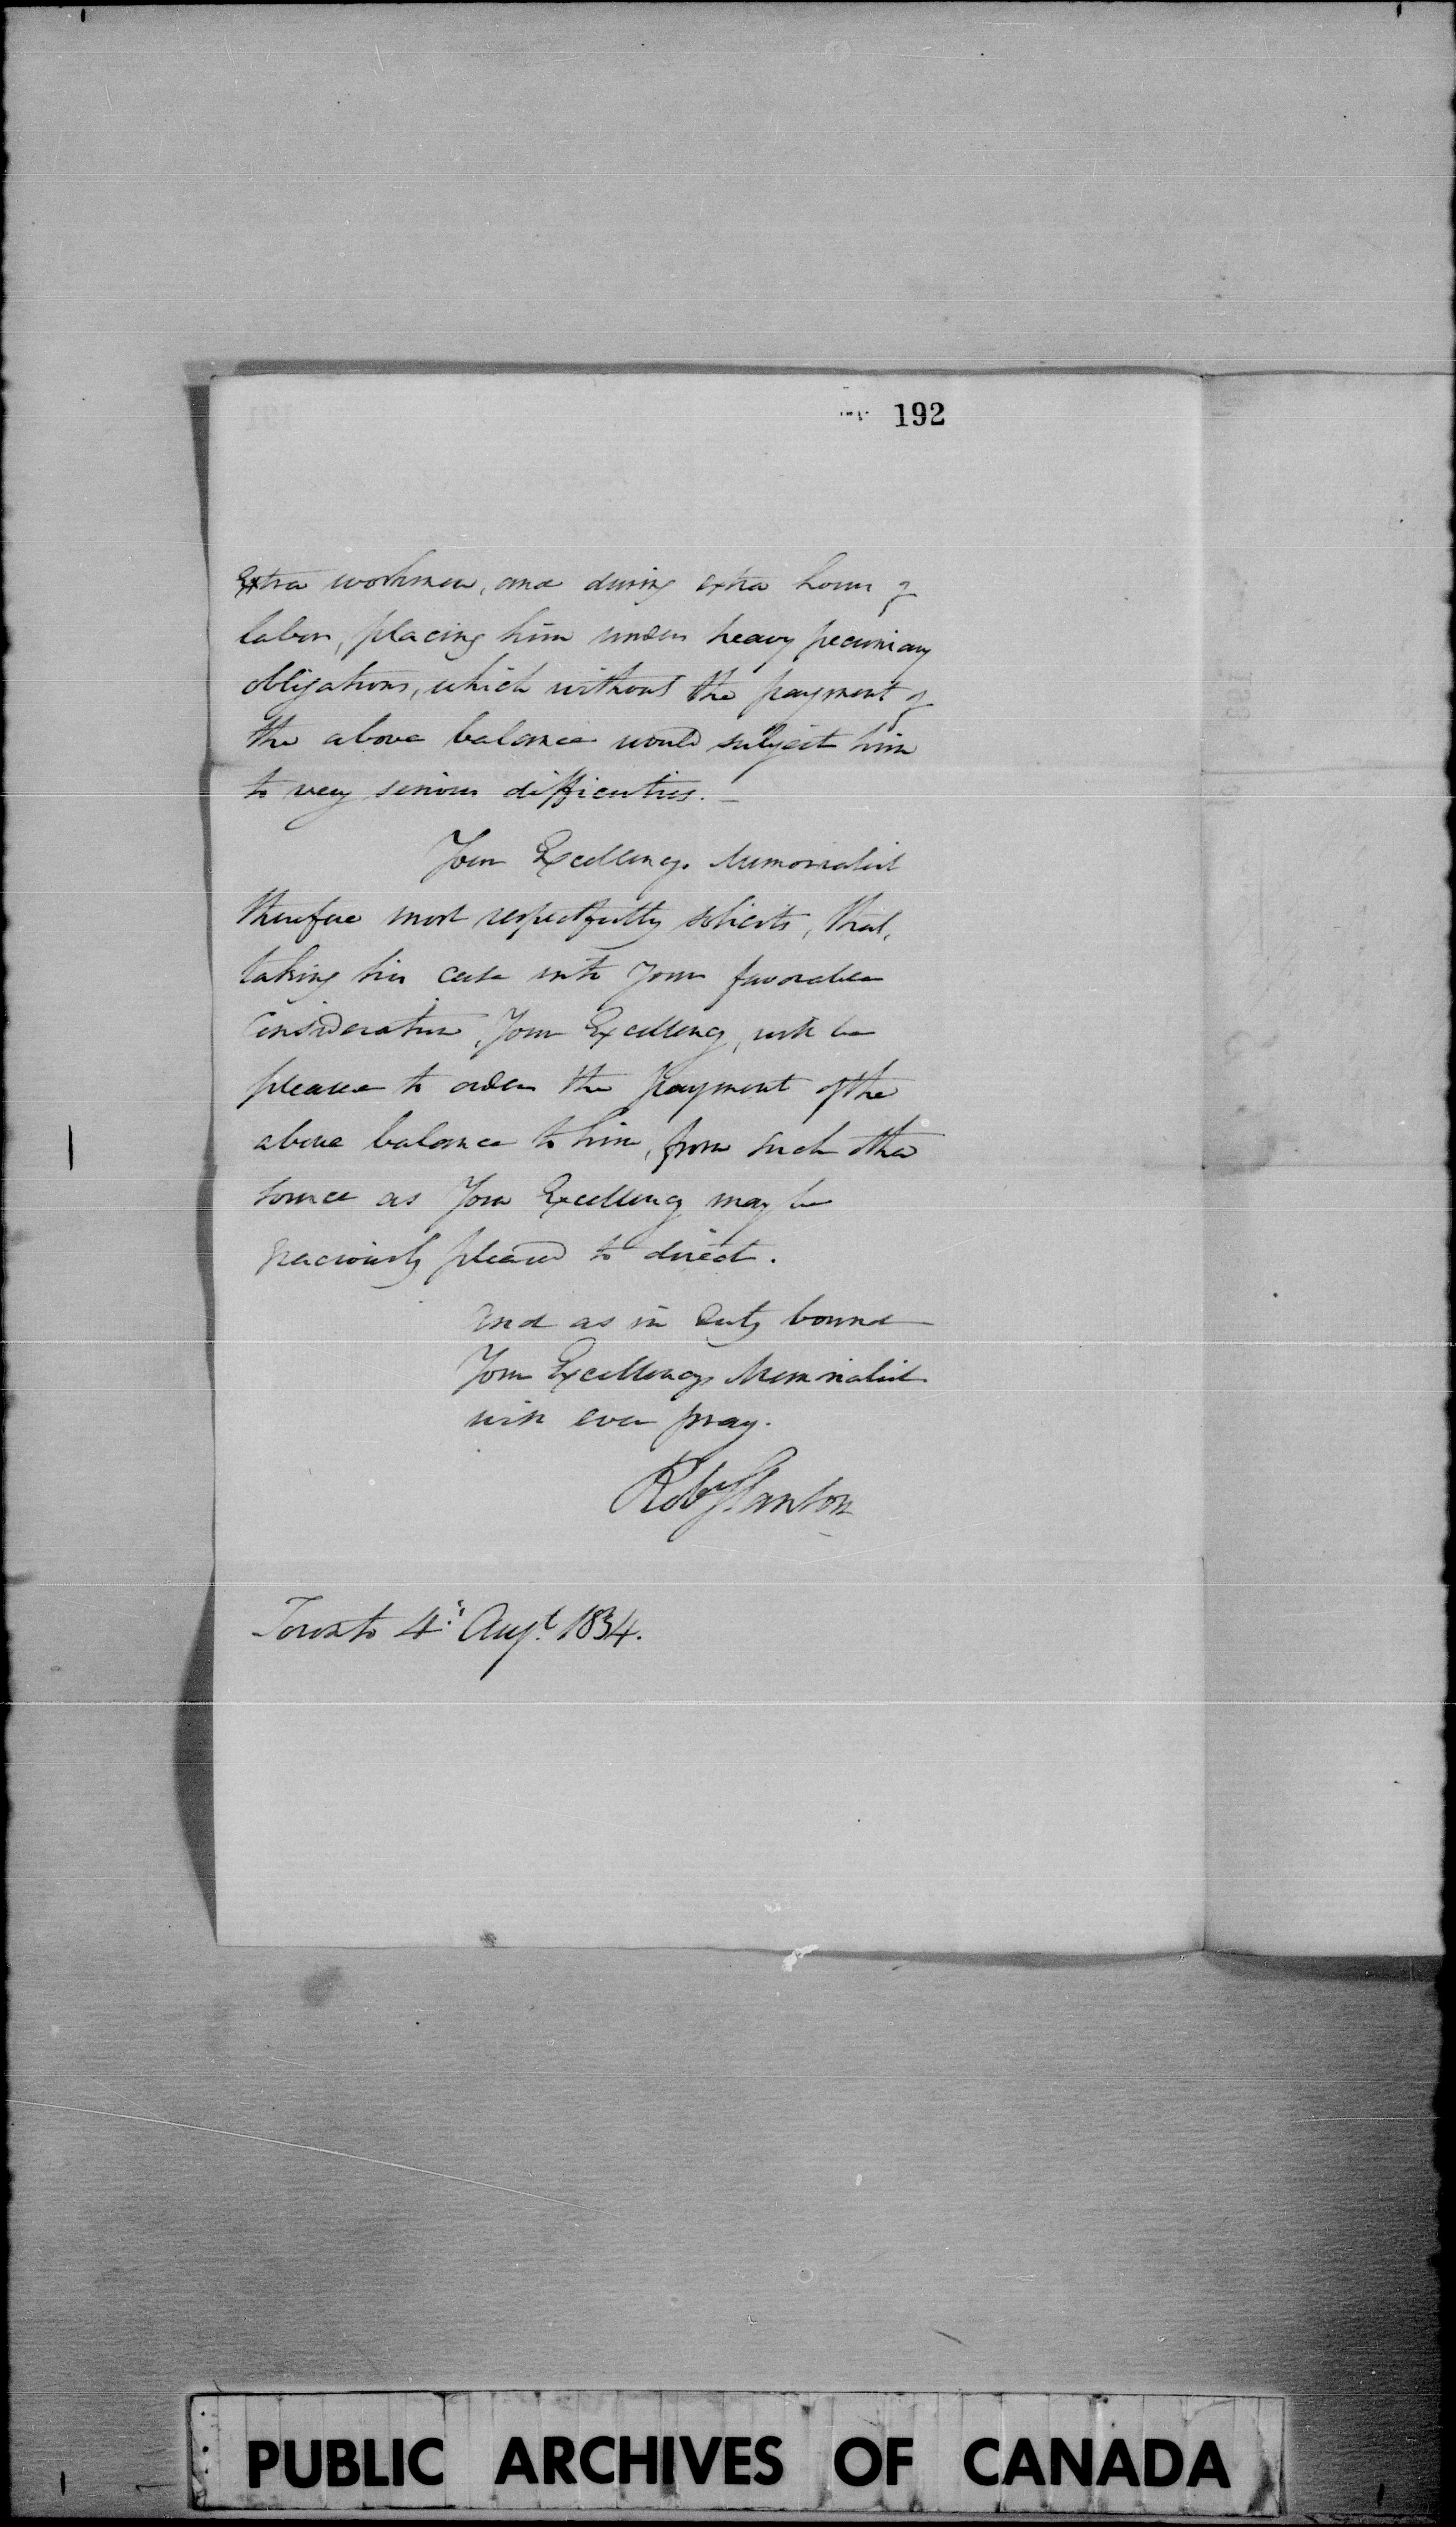 192
Extra workmen, and during extra hours of
labor, placing him under heavy pecuniary
obligations, which without the payment of
the above balance would subject him
to very serious difficulties. —
Your Excellency's Memorialist
therefore most respectfully solicits, that,
taking his case into Your favorable
Consideration, Your Excellency, will be
pleased to order the payment of the
above balance to him, from such other
source as Your Excellency may be
graciously pleased to direct.
And as in duty bound
Your Excellency's Memorialist
will ever pray.
Robt Stanton
Toronto 4th Augt. 1834.
PUBLIC ARCHIVES OF CANADA